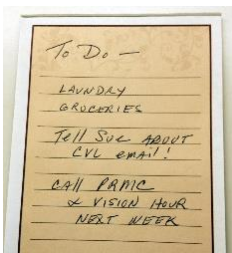 To Do —
LAUNDRY
GROCERIES
Tell Sue ABOUT
CVL EMAIL!
CALL PRMC
& VISION HOUR
NEXT WEEK